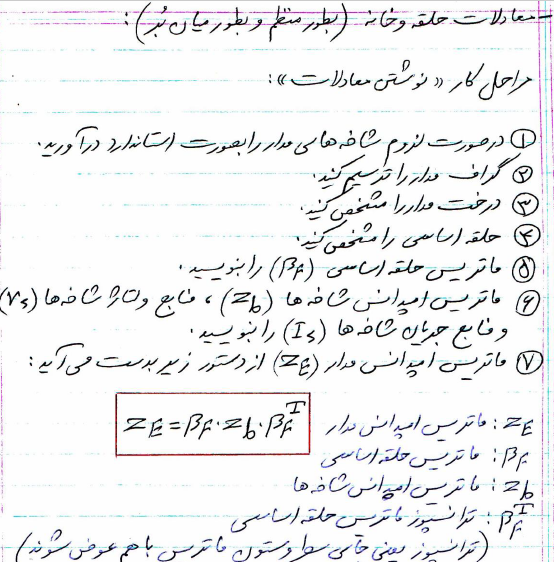 - معادلات حلقه و خانه (بطور منظم و بطور میان بُر):
مراحل کار «نوشتن معادلات»:
① درصورت لزوم شاخه های مدار را بصورت استاندارد درآورید.
② گراف مدار را ترسیم کنید.
③ درخت مدار را مشخص کنید.
④ حلقه اساسی را مشخص کنید.
⑤ ماتریس حلقه اساسی (βf) را بنویسید.
⑥ ماتریس امپدانس شاخه ها (Zb)، منابع ولتاژ شاخه ها (Vs)
و منابع جریان شاخه ها (Is) را بنویسید.
⑦ ماتریس امپدانس مدار (ZE) از دستور زیر بدست می آید:
ZE = βf · Zb · βf^T
ZE: ماتریس امپدانس مدار
βf: ماتریس حلقه اساسی
Zb: ماتریس امپدانس شاخه ها
βf^T: ترانسپوز ماتریس حلقه اساسی
(ترانسپوز یعنی جای سطر و ستون ماتریس با هم عوض شوند)